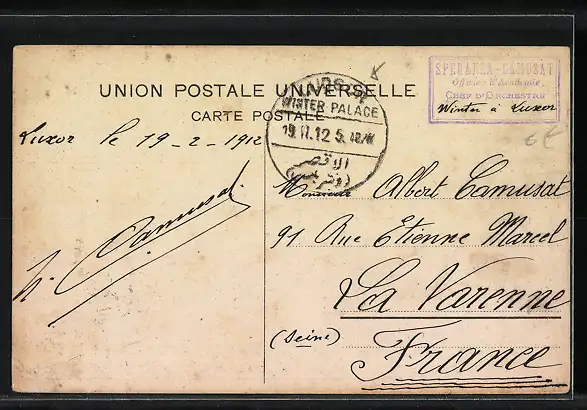 UNION POSTALE UNIVERSELLE
CARTE POSTALE
SPERANZA-CAMUSAT
Officier d'Académie
CHEF D'ORCHESTRE
Winter à Luxor
6€
LUXOR
WINTER PALACE
19.II.12 5
الاقصر
Luxor le 19-2-1912
Camusat
Monsieur Albert Camusat
91 Rue Etienne Marcel
La Varenne
(Seine)
France